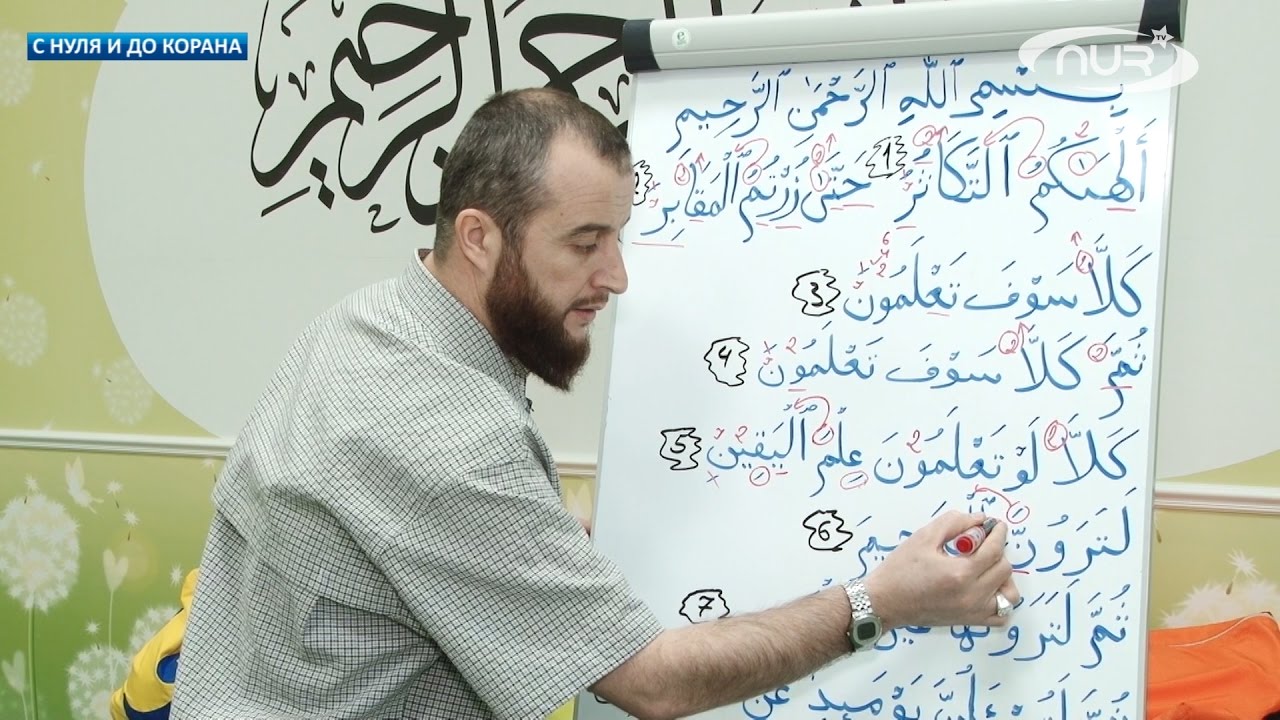 С НУЛЯ И ДО КОРАНА
NUR TV
الرحيم
بِسْمِ ٱللَّهِ ٱلرَّحْمَٰنِ ٱلرَّحِيمِ
أَلْهَىٰكُمُ ٱلتَّكَاثُرُ 1 حَتَّىٰ زُرْتُمُ ٱلْمَقَابِرَ 2
كَلَّا سَوْفَ تَعْلَمُونَ 3
ثُمَّ كَلَّا سَوْفَ تَعْلَمُونَ 4
كَلَّا لَوْ تَعْلَمُونَ عِلْمَ ٱلْيَقِينِ 5
لَتَرَوُنَّ 6
ثُمَّ لَتَرَوُنَّهَا 7
يَوْمَئِذٍ عَنِ